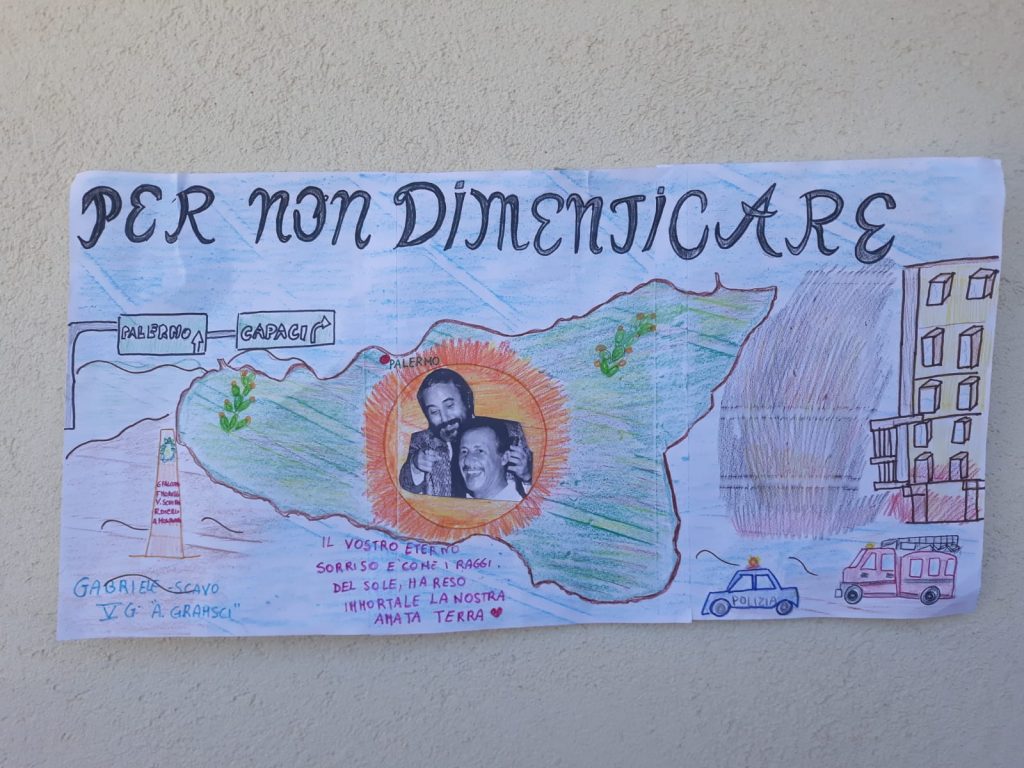 PER NON DIMENTICARE
PALERMO
CAPACI
PALERMO
IL VOSTRO ETERNO
SORRISO E COME I RAGGI
DEL SOLE, HA RESO
IMMORTALE LA NOSTRA
AMATA TERRA
GABRIELE SCAVO
V G "A. GRAMSCI"
POLIZIA